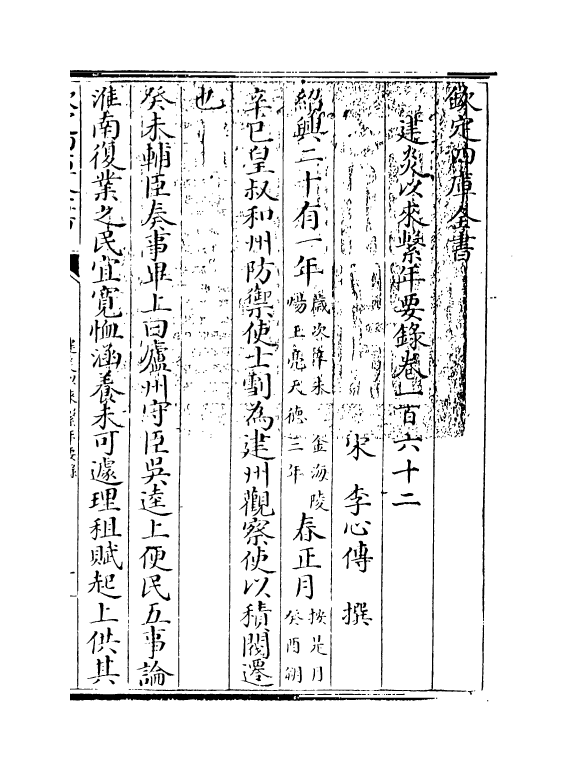 欽定四庫全書
建炎以來繫年要錄卷一百六十二
宋 李心傳 撰
紹興二十有一年歲次辛未 金海陵煬王亮天德三年春正月按是月癸酉朔
辛巳皇叔和州防禦使士劃為建州觀察使以積閥遷
也
癸未輔臣奏事畢上曰廬州守臣吳逵上便民五事論
淮南復業之民宜寬恤涵養未可遽理租賦起上供其